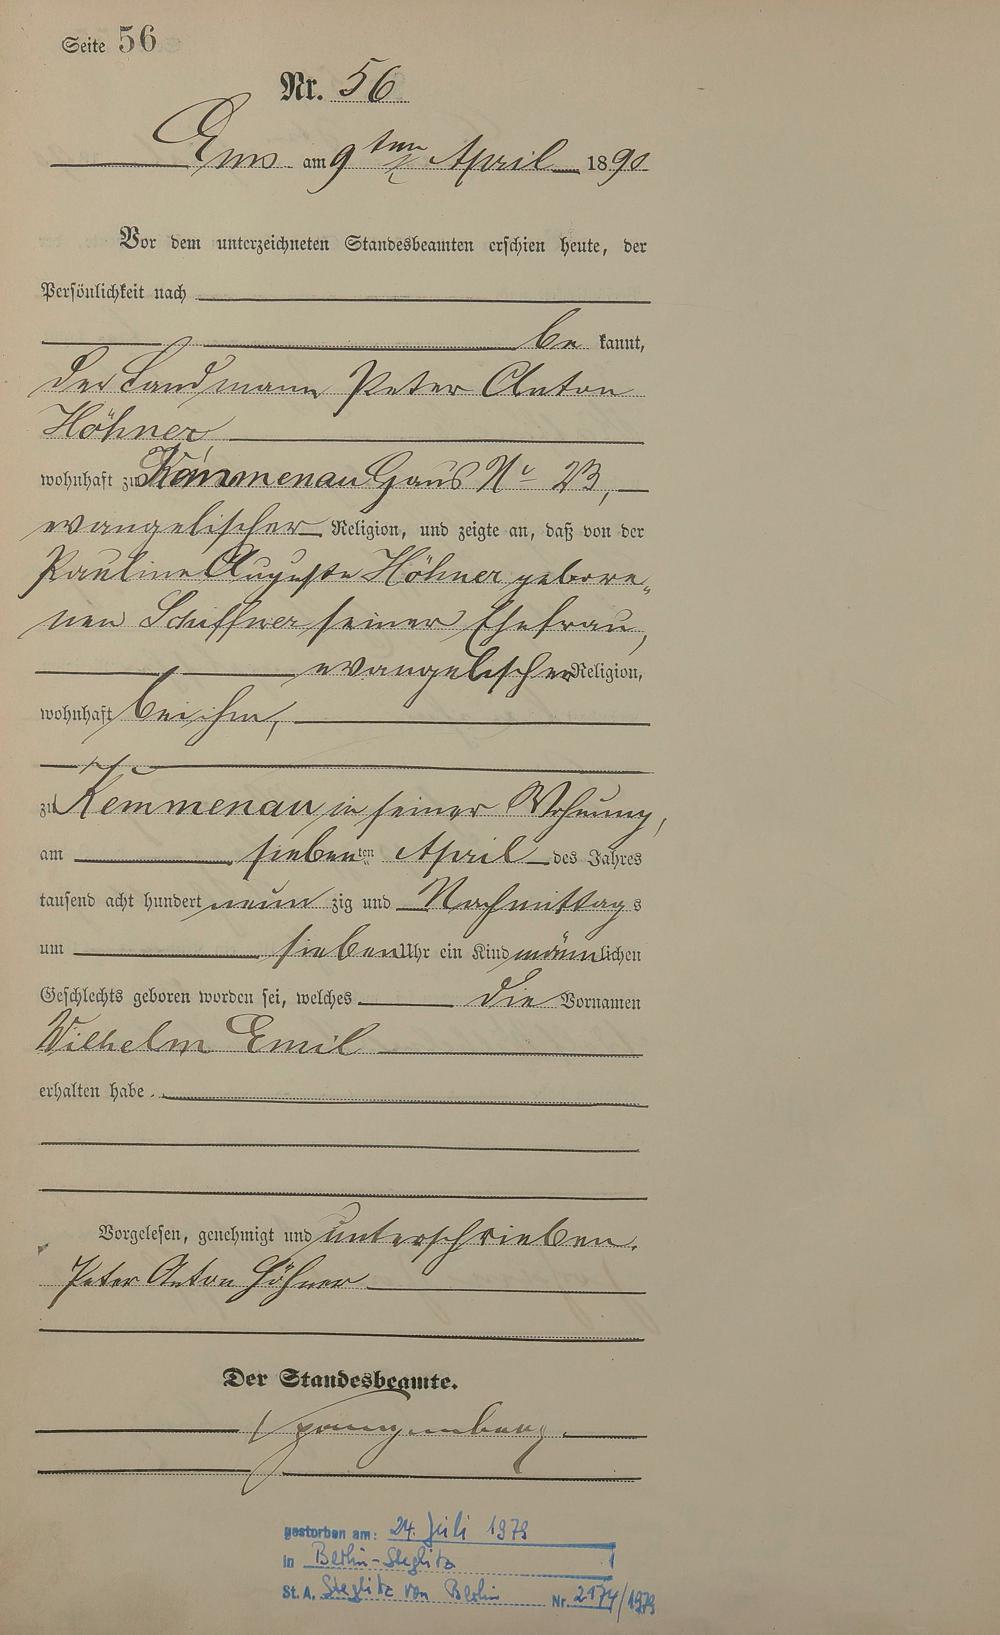 Seite 56
Nr. 56
Ems am 9ten April 1890
Vor dem unterzeichneten Standesbeamten erschien heute, der
Persönlichkeit nach
be kannt,
der Landmann Peter Anton
Höhner,
wohnhaft zu Kemmenau Haus No 23,
evangelischer Religion, und zeigte an, daß von der
Pauline Auguste Höhner gebore„
nen Schiffner seiner Ehefrau,
evangelischer Religion,
wohnhaft bei ihm,
zu Kemmenau in seiner Wohnung,
am siebenten April des Jahres
tausend acht hundert neun zig und Nachmittags
um sieben Uhr ein Kind männlichen
Geschlechts geboren worden sei, welches die Vornamen
Wilhelm Emil
erhalten habe.
Vorgelesen, genehmigt und unterschrieben.
Peter Anton Höhner
Der Standesbeamte.
Spangenberg
gestorben am: 24. Juli 1979
in Berlin-Steglitz
St. A. Steglitz von Berlin Nr. 2174/1979